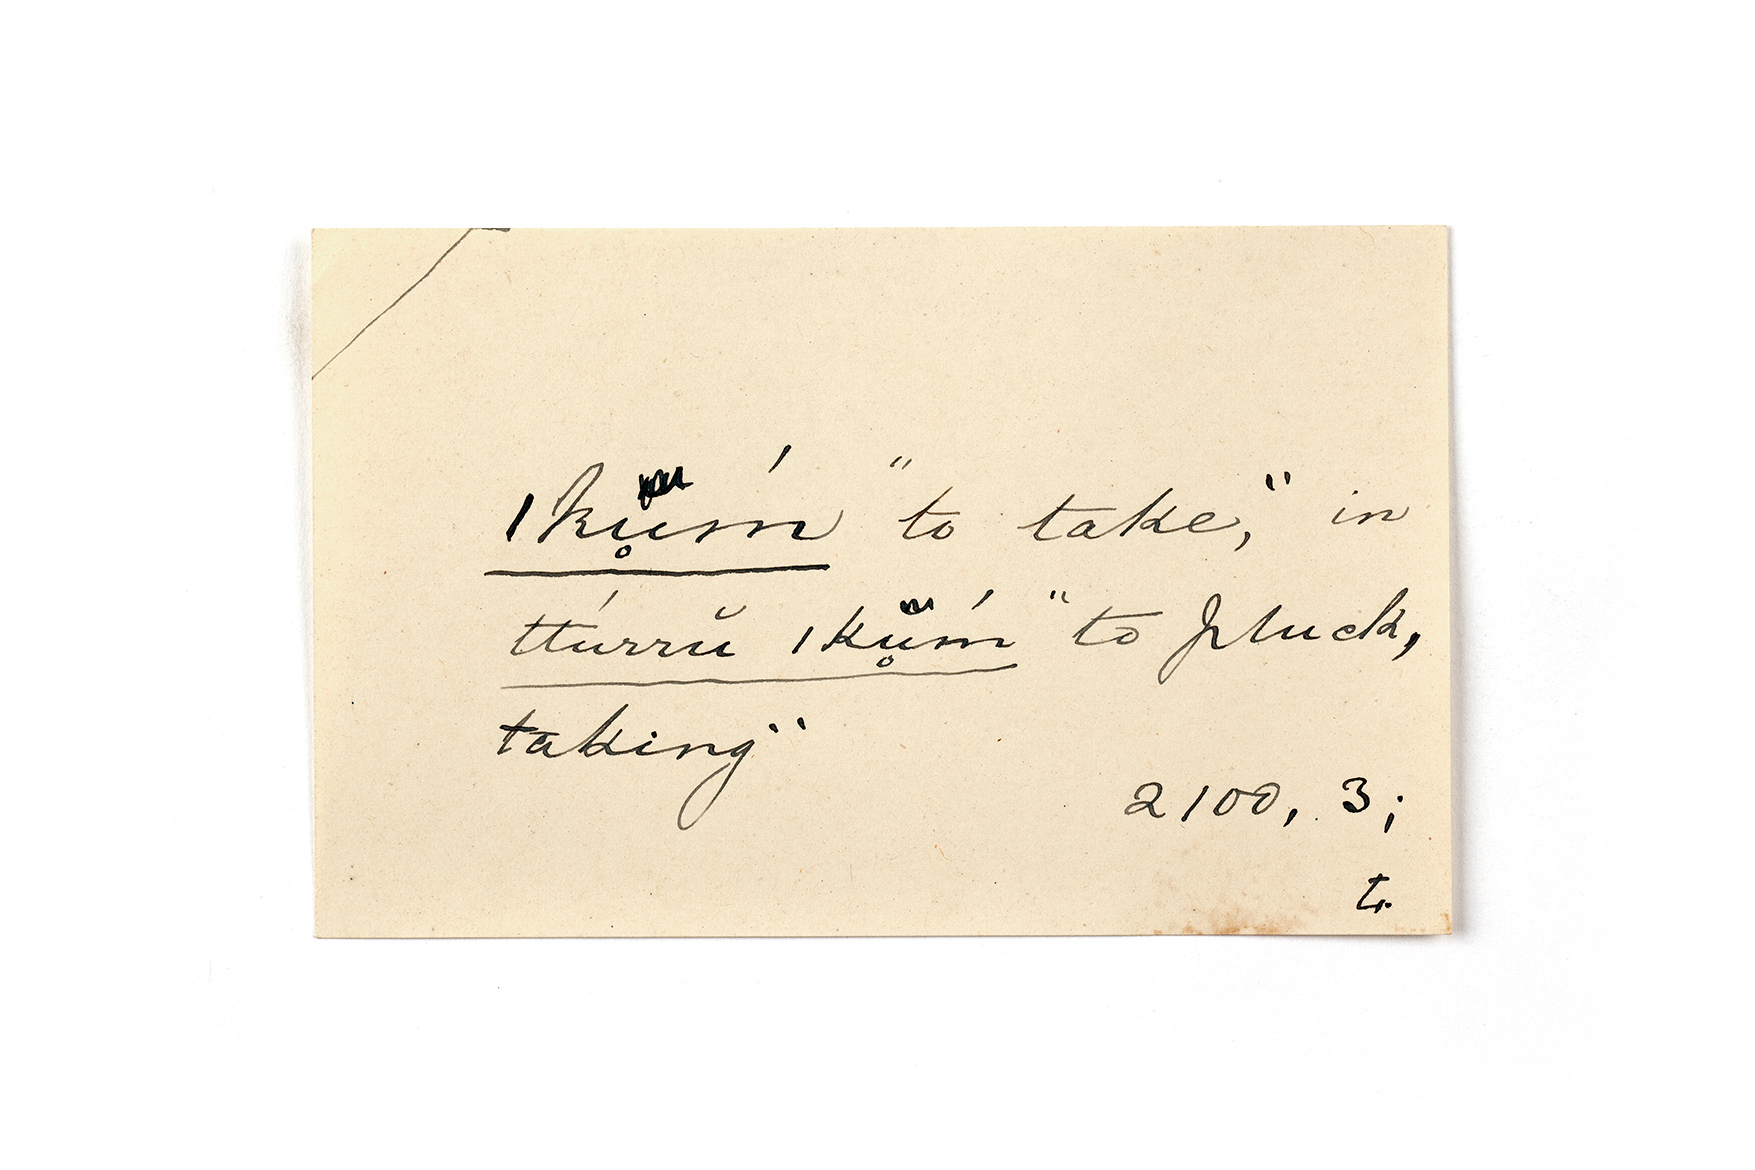 ıkŭ̥ḿ "to take," in
ttúrrŭ ıkŭ̥ḿ "to pluck,
taking"
2100, 3;
t.